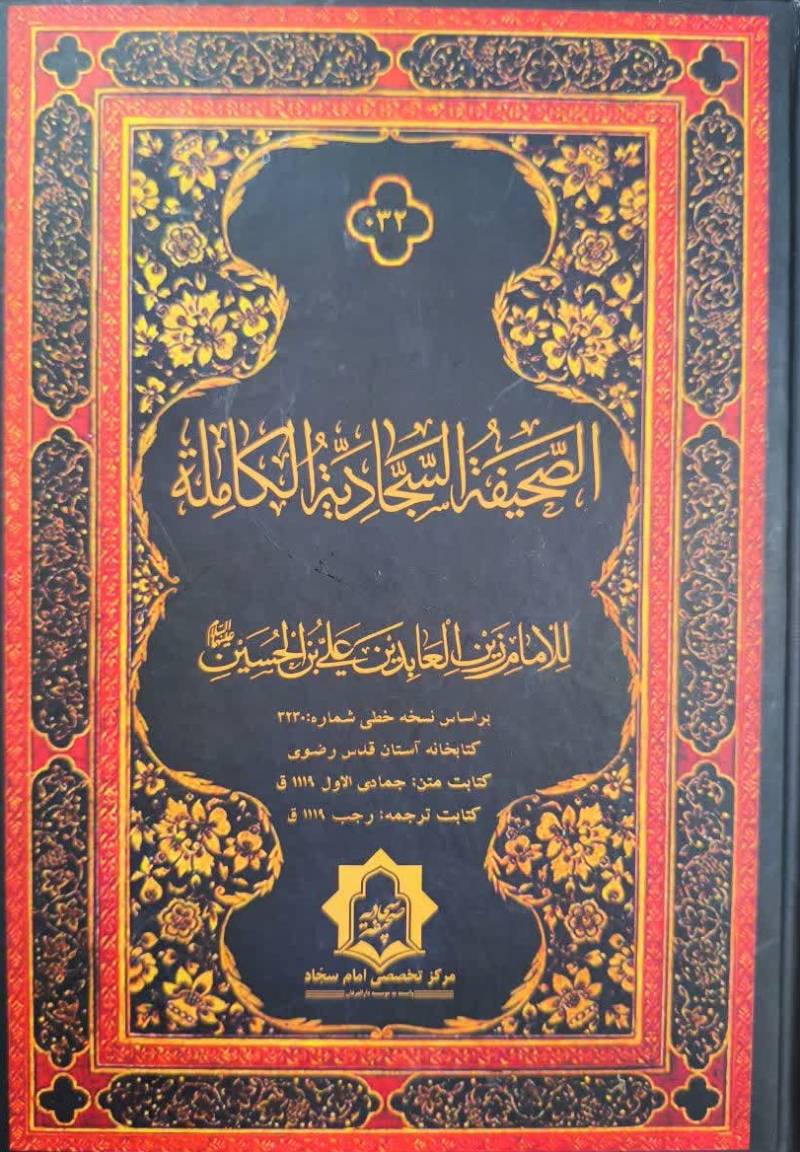 ۰۳۲
الصَّحیفَةُ السَّجّادِیَّةُ الکامِلَة
لِلاِمامِ زَینِ العابِدینَ عَلیِّ بنِ الحُسَینِ علیهما السلام
براساس نسخه خطی شماره: ۳۲۳۰
کتابخانه آستان قدس رضوی
کتابت متن: جمادی الاول ۱۱۱۹ ق
کتابت ترجمه: رجب ۱۱۱۹ ق
صحیفه سجادیه
مرکز تخصصی امام سجاد
وابسته به موسسه دارالعرفان